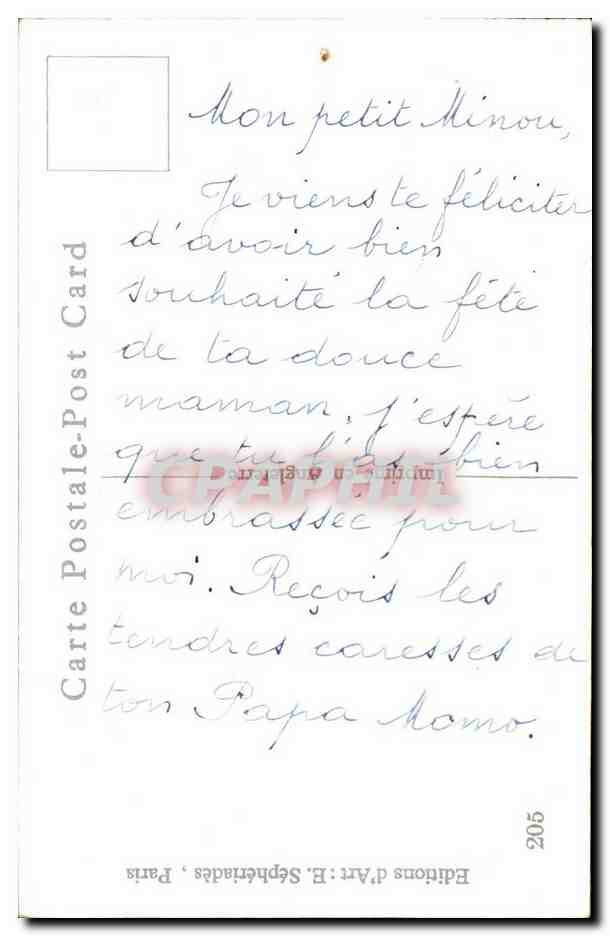 Mon petit Minou,
Je viens te féliciter
d'avoir bien
souhaité la fête
de ta douce
maman, j'espère
que tu l'as bien
embrassée pour
moi. Reçois les
tendres caresses de
ton Papa Momo.
Carte Postale-Post Card
Imprimé en Angleterre
CPAPHIL
205
Editions d'Art : E. Séphériadès, Paris